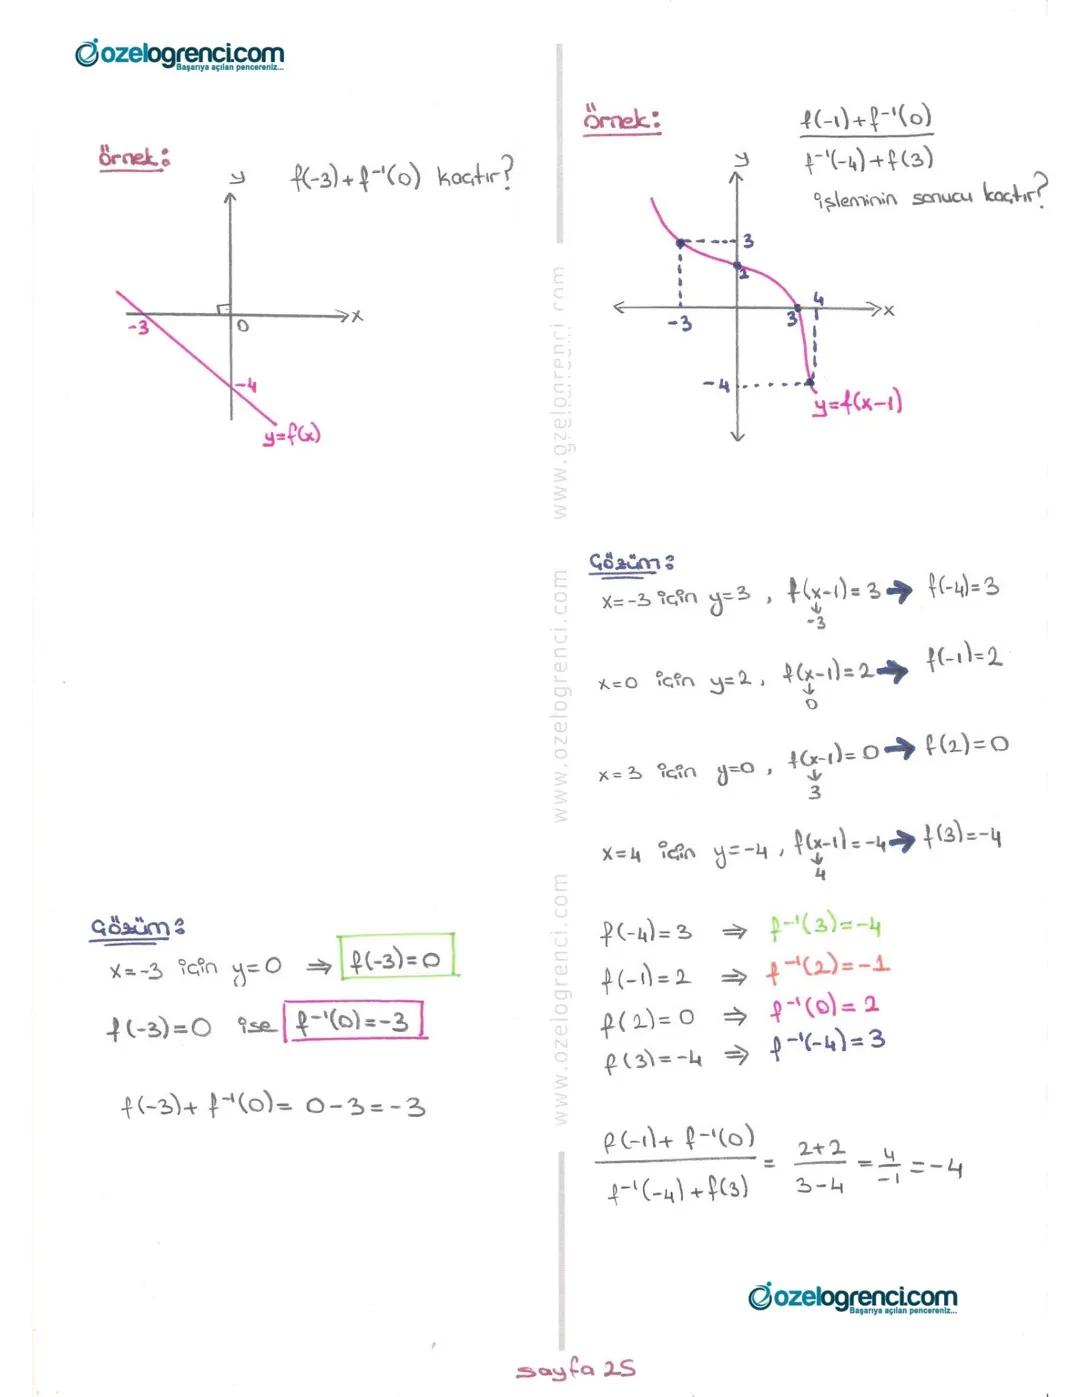 ozelogrenci.com
Başarıya açılan pencereniz...
Örnek:
f(-3)+f⁻¹(0) kaçtır?
y
x
-3
0
-4
y=f(x)
Çözüm:
x=-3 için y=0 ⇒ f(-3)=0
f(-3)=0 ise f⁻¹(0)=-3
f(-3)+f⁻¹(0)= 0-3=-3
www.ozelogrenci.com www.ozelogrenci.com www.ozelogrenci.com
Örnek:
f(-1)+f⁻¹(0)
f⁻¹(-4)+f(3)
işleminin sonucu kaçtır?
y
3
2
4
x
-3
3
-4
y=f(x-1)
Çözüm:
x=-3 için y=3, f(x-1)=3 → f(-4)=3
-3
x=0 için y=2, f(x-1)=2 → f(-1)=2
0
x=3 için y=0, f(x-1)=0 → f(2)=0
3
x=4 için y=-4, f(x-1)=-4 → f(3)=-4
4
f(-4)=3 ⇒ f⁻¹(3)=-4
f(-1)=2 ⇒ f⁻¹(2)=-1
f(2)=0 ⇒ f⁻¹(0)=2
f(3)=-4 ⇒ f⁻¹(-4)=3
f(-1)+f⁻¹(0) = 2+2 = 4 =-4
f⁻¹(-4)+f(3) 3-4 -1
ozelogrenci.com
Başarıya açılan pencereniz...
sayfa 25